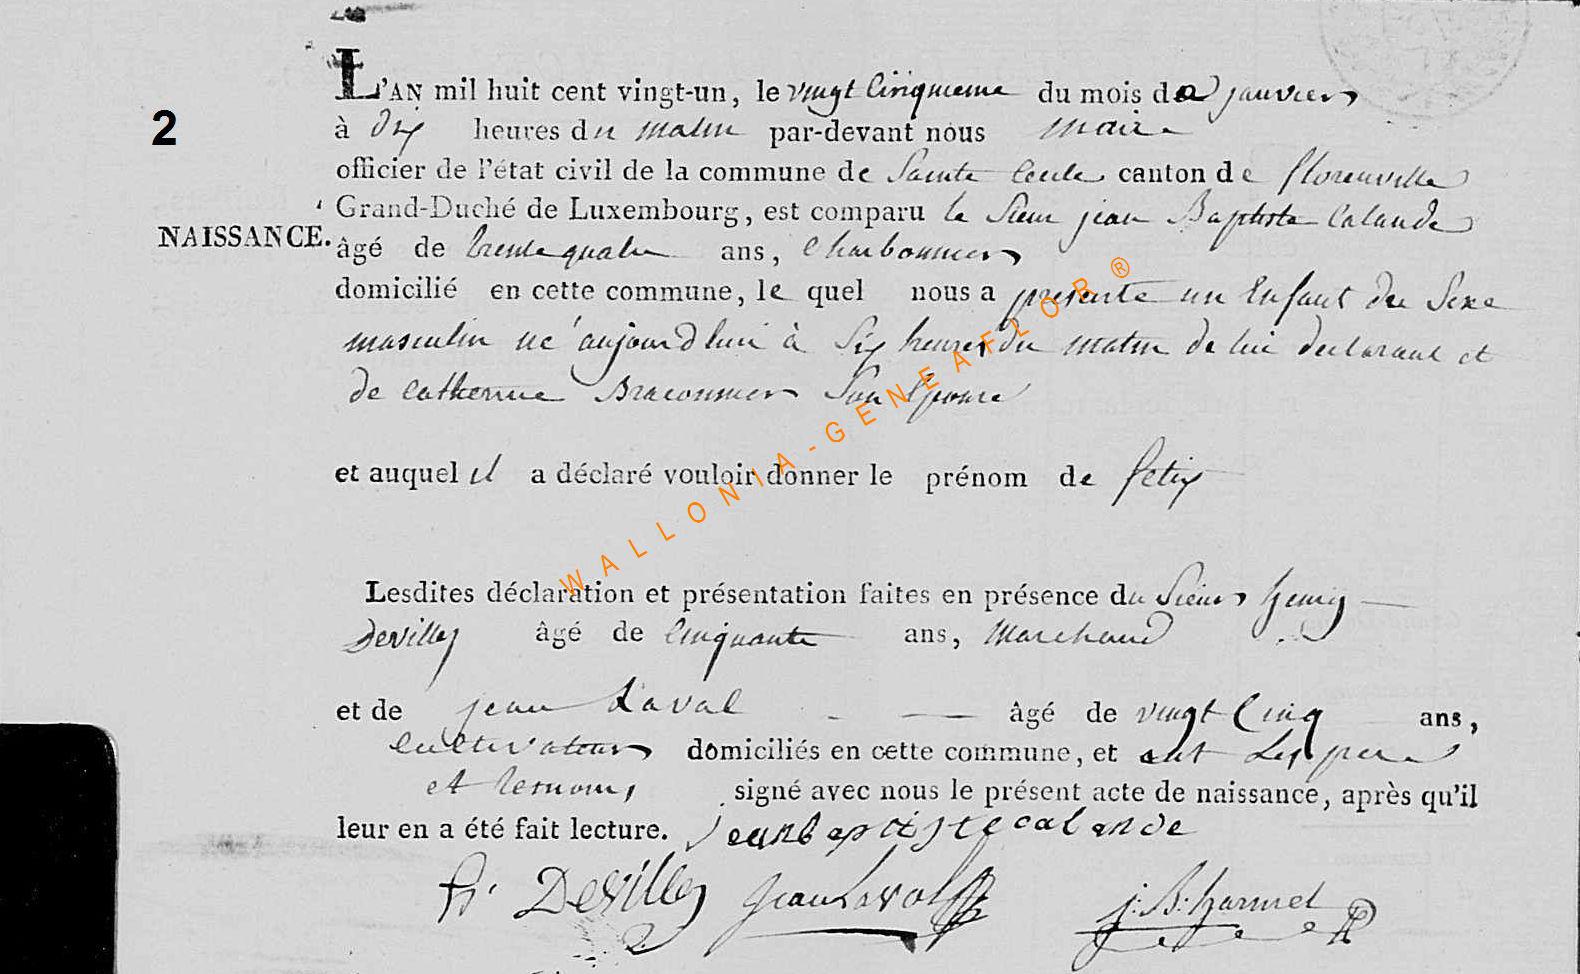 L'AN mil huit cent vingt-un, le vingt Cinquieme du mois de janvier
2
à dix heures du matin par-devant nous Maire
officier de l'état civil de la commune de Sainte Cecile canton de florenville
Grand-Duché de Luxembourg, est comparu le Sieur jean Baptiste Calande
NAISSANCE.
âgé de trente quatre ans, Charbonnier
domicilié en cette commune, le quel nous a presenté un Enfant du Sexe
masculin né aujourd'hui à Six heures du matin de lui declarant et
de Catherine Braconnier Son Epouse
et auquel il a déclaré vouloir donner le prénom de félix
WALLONIA-GENEAFLOR ®
Lesdites déclaration et présentation faites en présence du Sieur henry
Devilles âgé de Cinquante ans, Marchand
et de jean Laval âgé de vingt Cinq ans,
Cultivateur domiciliés en cette commune, et ont Les pere
et temoins signé avec nous le présent acte de naissance, après qu'il
leur en a été fait lecture. jeanbaptiste calande
h. Devilles jean Laval j: B: harmel